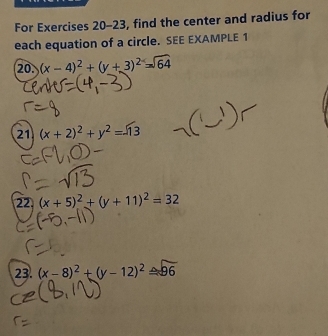 For Exercises 20–23, find the center and radius for
each equation of a circle. SEE EXAMPLE 1
20. (x − 4)² + (y + 3)² = √64
center = (4, −3)
r = 8
21. (x + 2)² + y² = √13
r = √13
22. (x + 5)² + (y + 11)² = 32
c = (−5, −11)
r =
23. (x − 8)² + (y − 12)² = √96
c = (8, 12)
r =